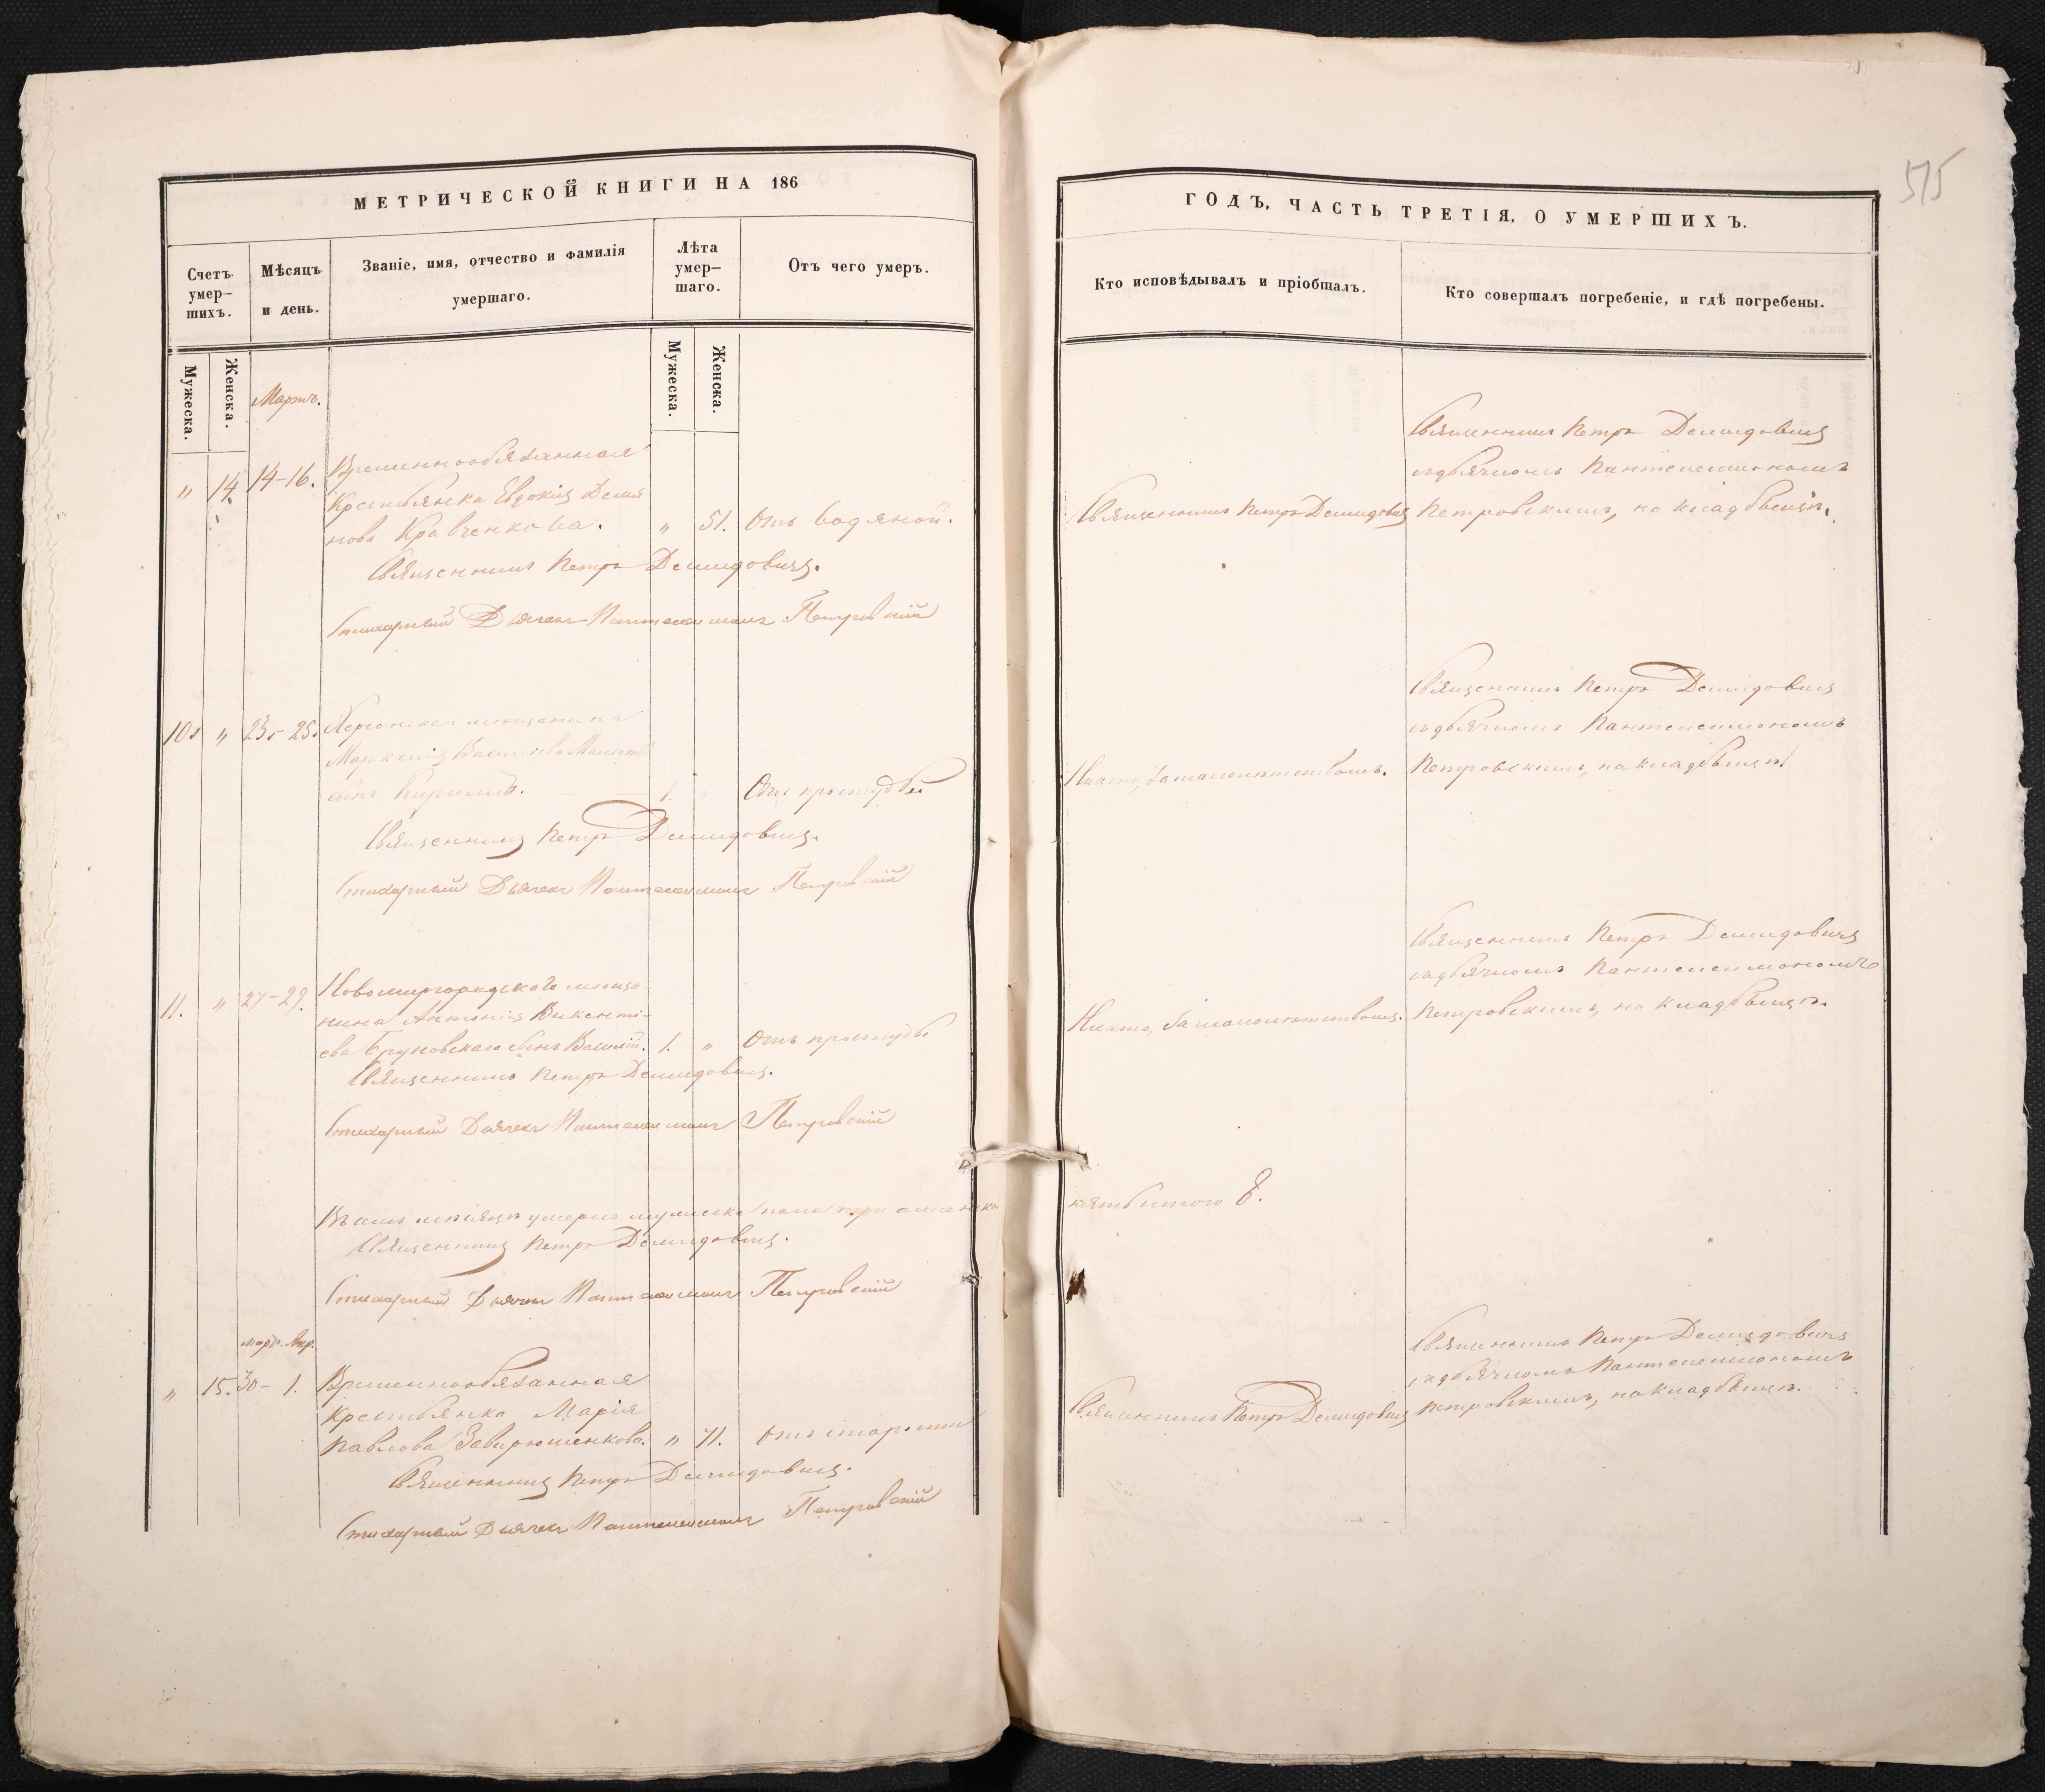 МЕТРИЧЕСКОЙ КНИГИ НА 186
Счетъ умер-
шихъ.
Мѣсяцъ
и день.
Званіе, имя, отчество и фамилія
умершаго.
Лѣта
умер-
шаго.
Отъ чего умеръ.
Мужеска.
Женска.
Мужеска.
Женска.
Мартъ.
" 14. 14-16. Временнообязанная
Крестьянка Евдокія Деміа
нова Кравченкова. " 51. Отъ водяной.
Священникъ Петръ Демидовичъ.
Стихарный Дьячекъ Пантелеимонъ Петровскій
10. " 23-25. Херсонскаго мещанина
Василіева
сынъ Кирилъ. 1. " Отъ простуды
Священникъ Петръ Демидовичъ.
Стихарный Дьячекъ Пантелеимонъ Петровскій
11. " 27-29. Новомиргородскаго мѣща-
нина Антонія Викенті-
ева сынъ Василій. 1. " Отъ простуды
Священникъ Петръ Демидовичъ.
Стихарный Дьячекъ Пантелеимонъ Петровскій
мѣсяцѣ умерло мужеска пола три а женска
Священникъ Петръ Демидовичъ.
Стихарный Дьячекъ Пантелеимонъ Петровскій
март. Апр.
" 15. 30- 1. Временнообязанная
Крестьянка Марія
Павлова Завирюшенкова. " 71. Отъ старости
Священникъ Петръ Демидовичъ.
Стихарный Дьячекъ Пантелеимонъ Петровскій
575
ГОДЪ, ЧАСТЬ ТРЕТІЯ, О УМЕРШИХЪ.
Кто исповѣдывалъ и пріобщалъ.
Кто совершалъ погребеніе, и гдѣ погребены.
Священникъ Петръ Демидовичъ
съ дьячкомъ Пантелеимономъ
Священникъ Петръ Демидовичъ Петровскимъ, на кладбищѣ.
Священникъ Петръ Демидовичъ
съ дьячкомъ Пантелеимономъ
Никто, за малолѣтствомъ. Петровскимъ, на кладбищѣ
Священникъ Петръ Демидовичъ
съ дьячкомъ Пантелеимономъ
Никто, за малолѣтствомъ. Петровскимъ, на кладбищѣ.
пять итого 8.
Священникъ Петръ Демидовичъ
съ дьячкомъ Пантелеимономъ
Священникъ Петръ Демидовичъ Петровскимъ, на кладбищѣ.